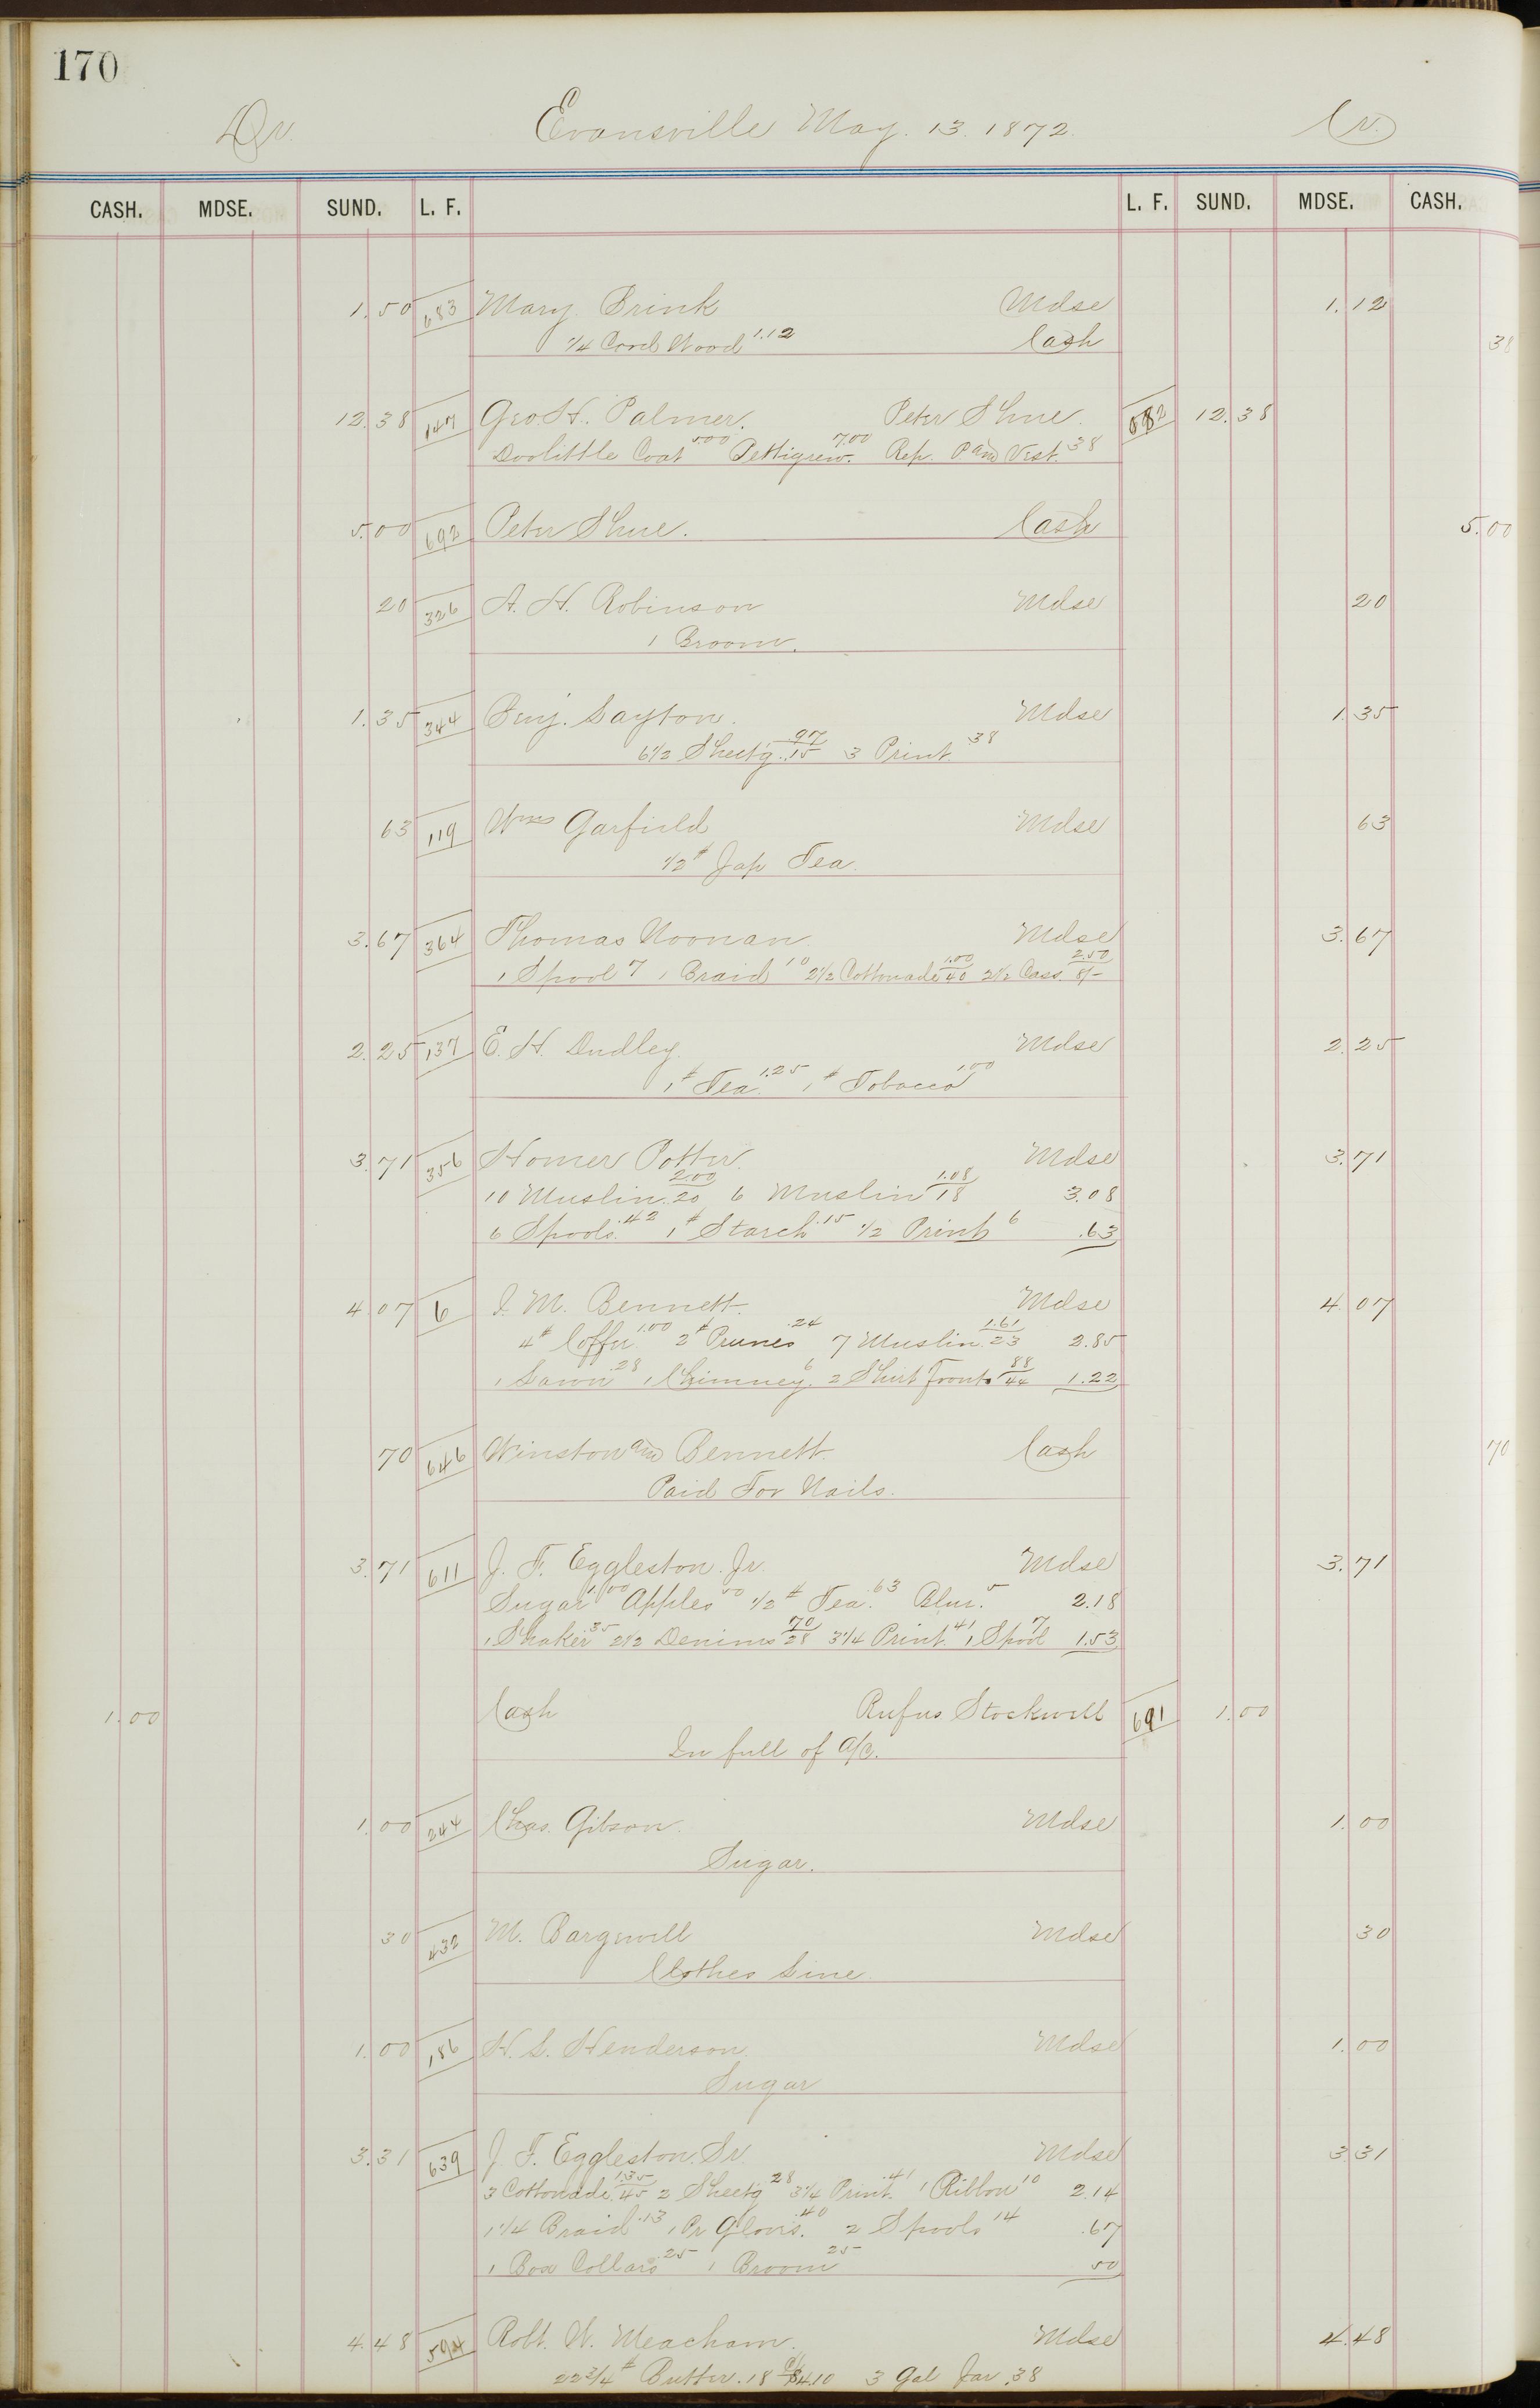 170
Dr. Evansville May. 13. 1872. Cr.
CASH. MDSE. SUND. L. F. L. F. SUND. MDSE. CASH.
1.50 683 Mary Brink Mdse 1.12
1/4 Cord Wood 1.12 Cash 38
12.38 147 Geo. H. Palmer. Peter Shue. 12.38
Doolittle Coat 5.00 Pettigrew. 7.00 Rep. P. and Vest. 38
5.00 692 Peter Shue. Cash 5.00
20 326 A. H. Robinson Mdse 20
1 Broom.
1.35 344 Benj. Layton. Mdse 1.35
6 1/2 Sheet'g. 97/.15 3 Print 38
63 119 Wm Garfield Mdse 63
1/2 # Jap Tea.
3.67 364 Thomas Noonan Mdse 3.67
1 Spool 7 1 Braid 10 2 1/2 Cottonade 1.00/40 2 1/2 Cass. 2.50/8/-
2.25 137 E. H. Dudley. Mdse 2.25
1 # Tea. 1.25 1 # Tobacco 1.00
3.71 356 Homer Potter. Mdse 3.71
10 Muslin. 2.00/20 6 Muslin 1.08/18 3.08
6 Spools. .42 1 # Starch .15 1/2 Print 6 .63
4.07 6 I. M. Bennett. Mdse 4.07
4 # Coffee 1.00 2 # Prunes .24 7 Muslin 1.61/23 2.85
1 Lawn .28 1 Chimney. 6 2 Shirt Fronts 88/44 1.22
70 646 Winston and Bennett. Cash 70
Paid For Nails.
3.71 611 J. F. Eggleston. Jr. Mdse 3.71
Sugar 1.00 Apples 50 1/2 # Tea. .63 Blue. 5 2.18
1 Shaker 35 2 1/2 Denims 70/28 3 1/4 Print. 41 1 Spool 7 1.53
1.00 Cash Rufus Stockwell 691 1.00
In full of a/c.
1.00 244 Chas. Gibson. Mdse 1.00
Sugar.
30 432 M. Bargewell Mdse 30
Clothes Line.
1.00 186 H. L. Henderson Mdse 1.00
Sugar
3.31 639 J. F. Eggleston. Sr. Mdse 3.31
3 Cottonade 1.35/45 2 Sheet'g 28 3 1/4 Print. .41 1 Ribbon 10 2.14
1 1/4 Braid .13 1 Pr Gloves. .40 2 Spools 14 .67
1 Box Collars 25 1 Broom 25 50
4.48 594 Robt. W. Meacham. Mdse 4.48
22 3/4 # Butter. 18 4.10 3 Gal Jar .38